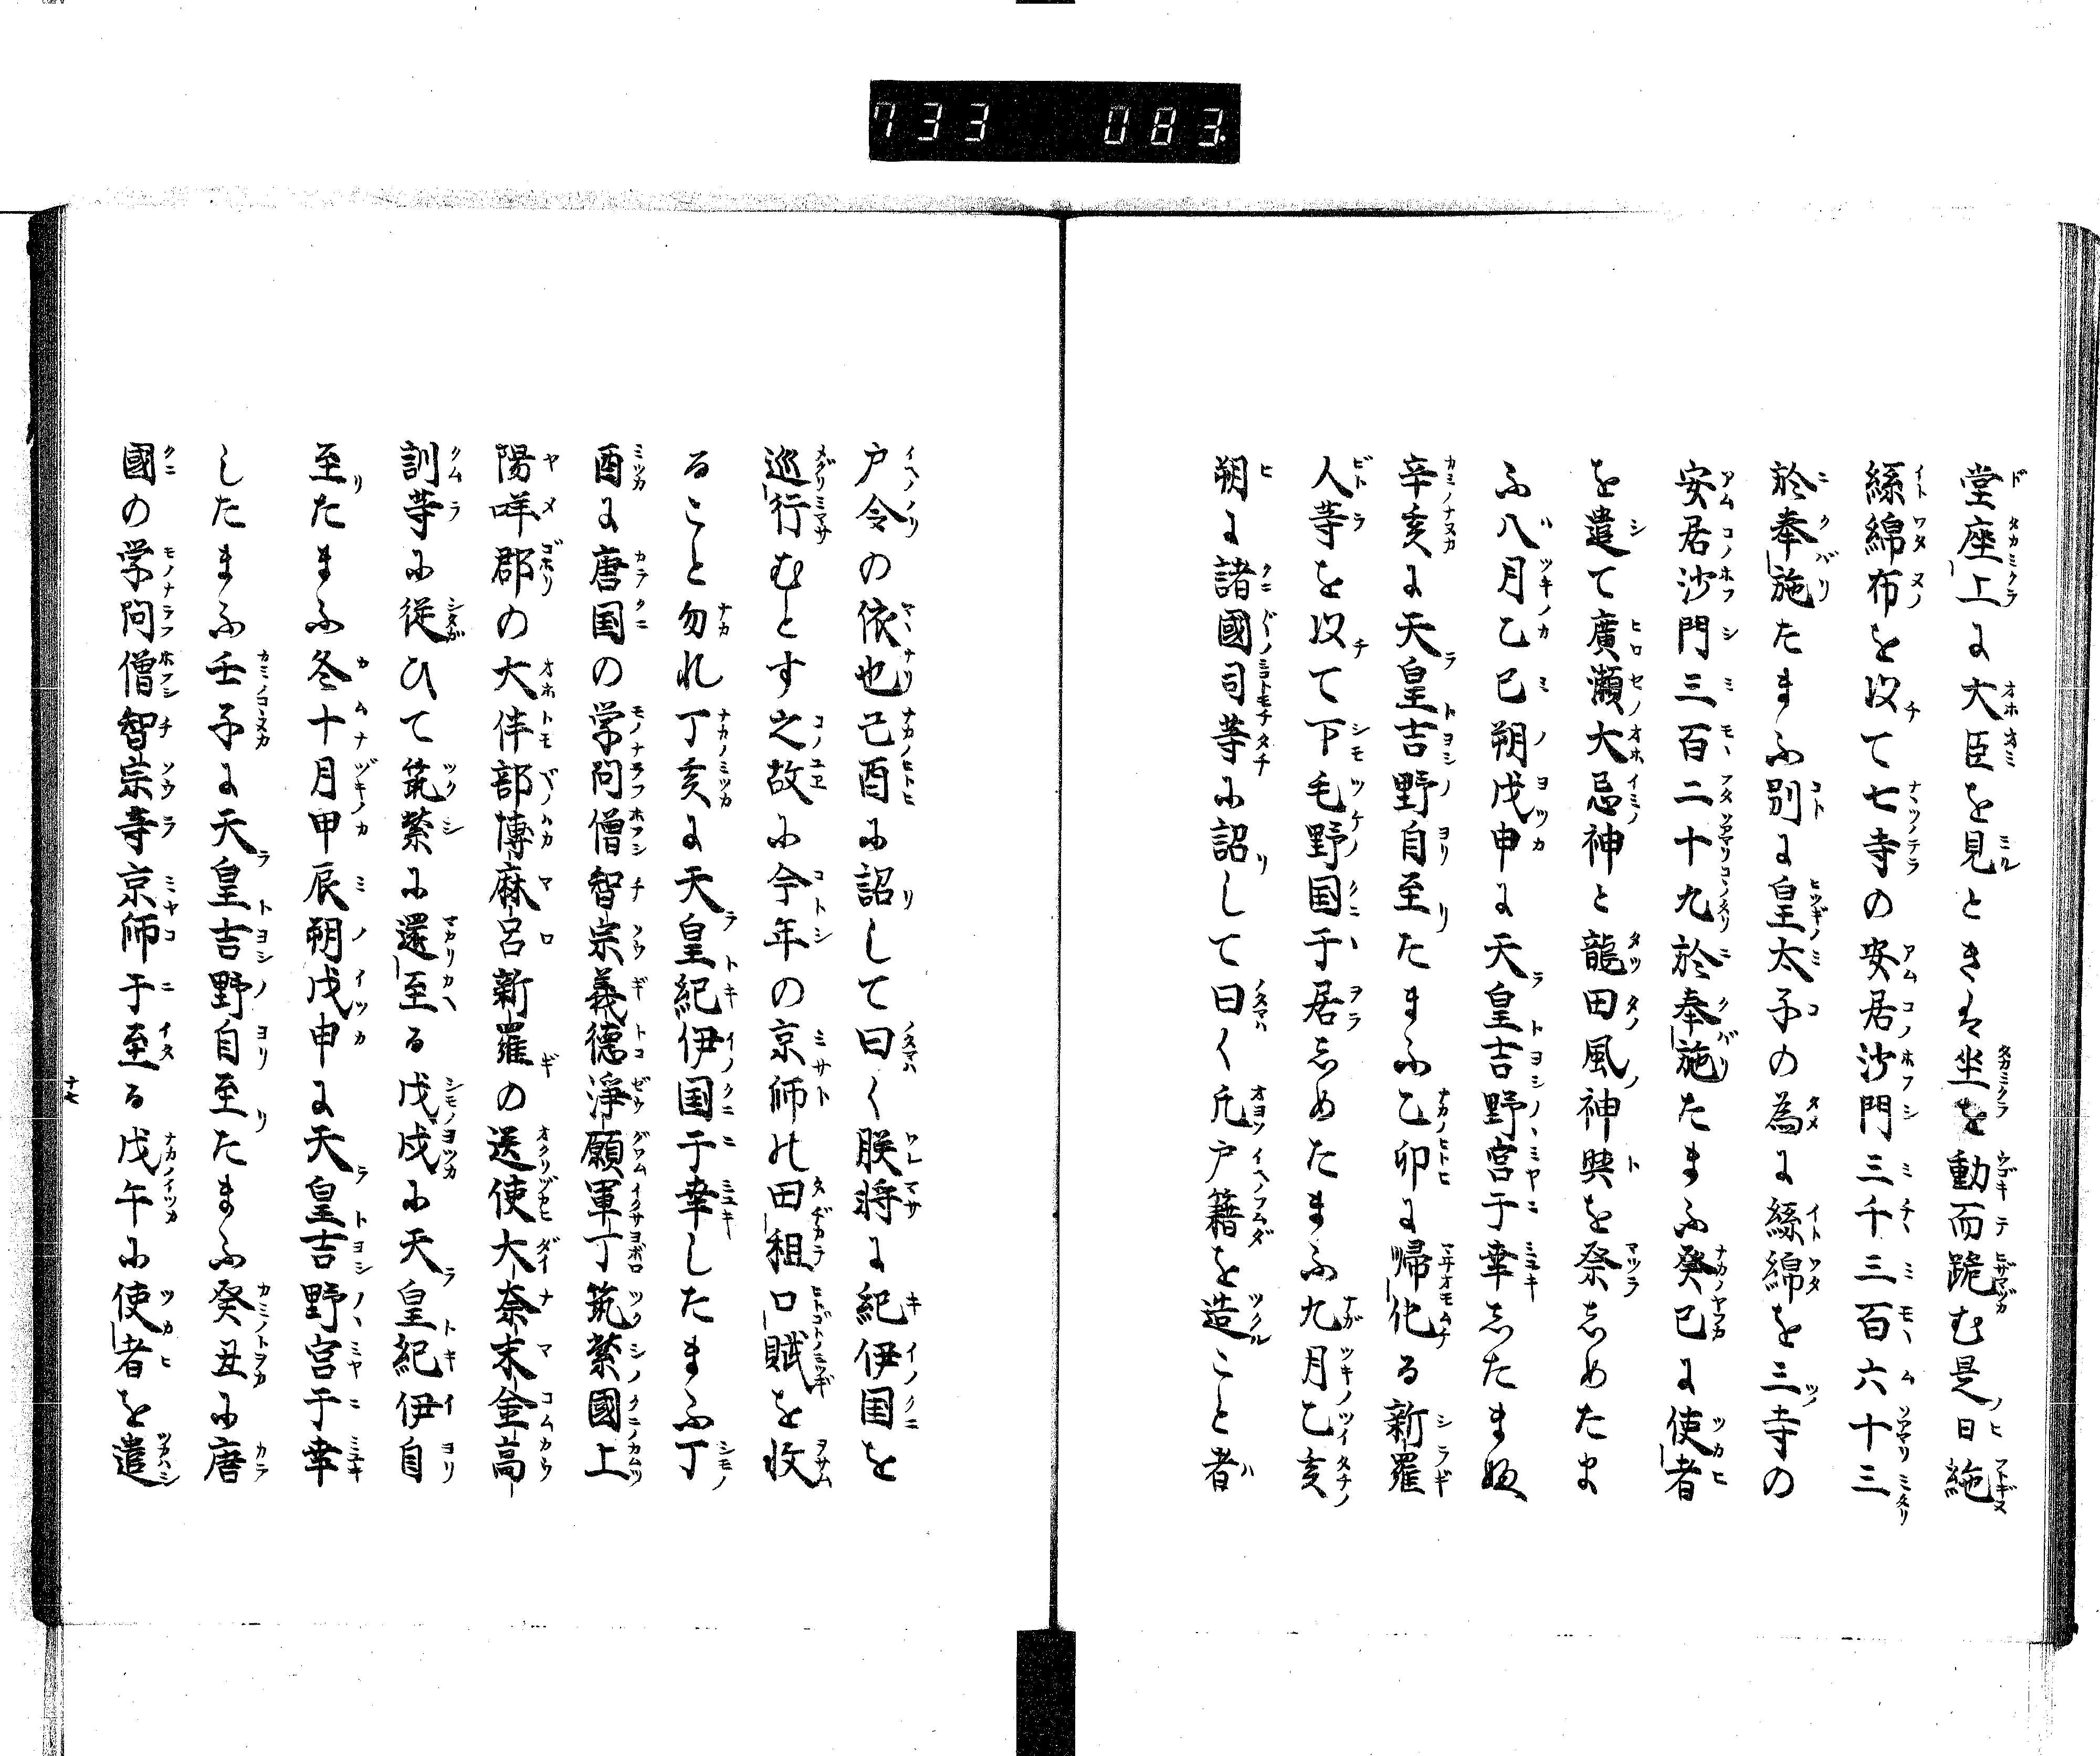 733 083.
堂座上に大臣を見ときは坐を動而跪む是日絁
絲綿布を以て七寺の安居沙門三千三百六十三
於奉施たまふ別に皇太子の為に絲綿を三寺の
安居沙門三百二十九於奉施たまふ癸巳に使者
を遣て廣瀬大忌神と龍田風神與を祭しめたま
ふ八月乙巳朔戊申に天皇吉野宮于幸したまぬ
辛亥に天皇吉野自至たまふ乙卯に帰化る新羅
人等を以て下毛野国于居しめたまふ九月乙亥
朔に諸國司等に詔して曰く凡戸籍を造こと者
戸令の依也己酉に詔して曰く朕将に紀伊国を
巡行むとす之故に今年の京師の田租口賦を收
ること勿れ丁亥に天皇紀伊国于幸したまふ丁
酉に唐国の学問僧智宗義德淨願軍丁筑紫國上
陽咩郡の大伴部博麻呂新羅の送使大奈末金高
訓等に從ひて筑紫に還至る戊戌に天皇紀伊自
至たまふ冬十月甲辰朔戊申に天皇吉野宮于幸
したまふ壬子に天皇吉野自至たまふ癸丑に唐
國の学问僧智宗等京師于至る戊午に使者を遣
十七